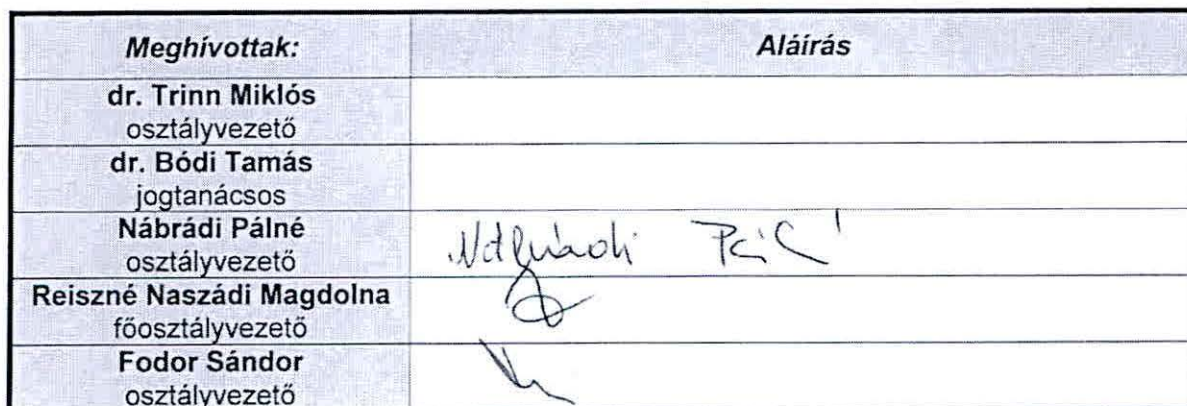 Meghívottak: Aláírás
dr. Trinn Miklós
osztályvezető
dr. Bódi Tamás
jogtanácsos
Nábrádi Pálné
osztályvezető
Reiszné Naszádi Magdolna
főosztályvezető
Fodor Sándor
osztályvezető